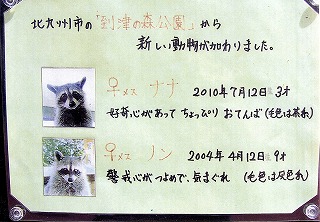 北九州市の「到津の森公園」から
新しい動物が加わりました。
♀メス ナナ 2010年7月12日生 3才
好奇心があって ちょっぴり おてんば (毛色は茶れ)
♀メス ノン 2004年4月12日生 9才
警戒心がつよめで、気まぐれ (毛色は灰色れ)